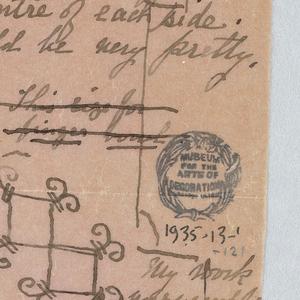 ntre of each side.
ld be very pretty.
This size for
finger bowl
MUSEUM
FOR THE
ARTS OF
DECORATION
1935-13-1
-121
My work